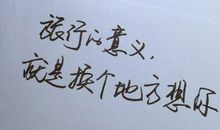 旅行的意义,
就是换个地方想你